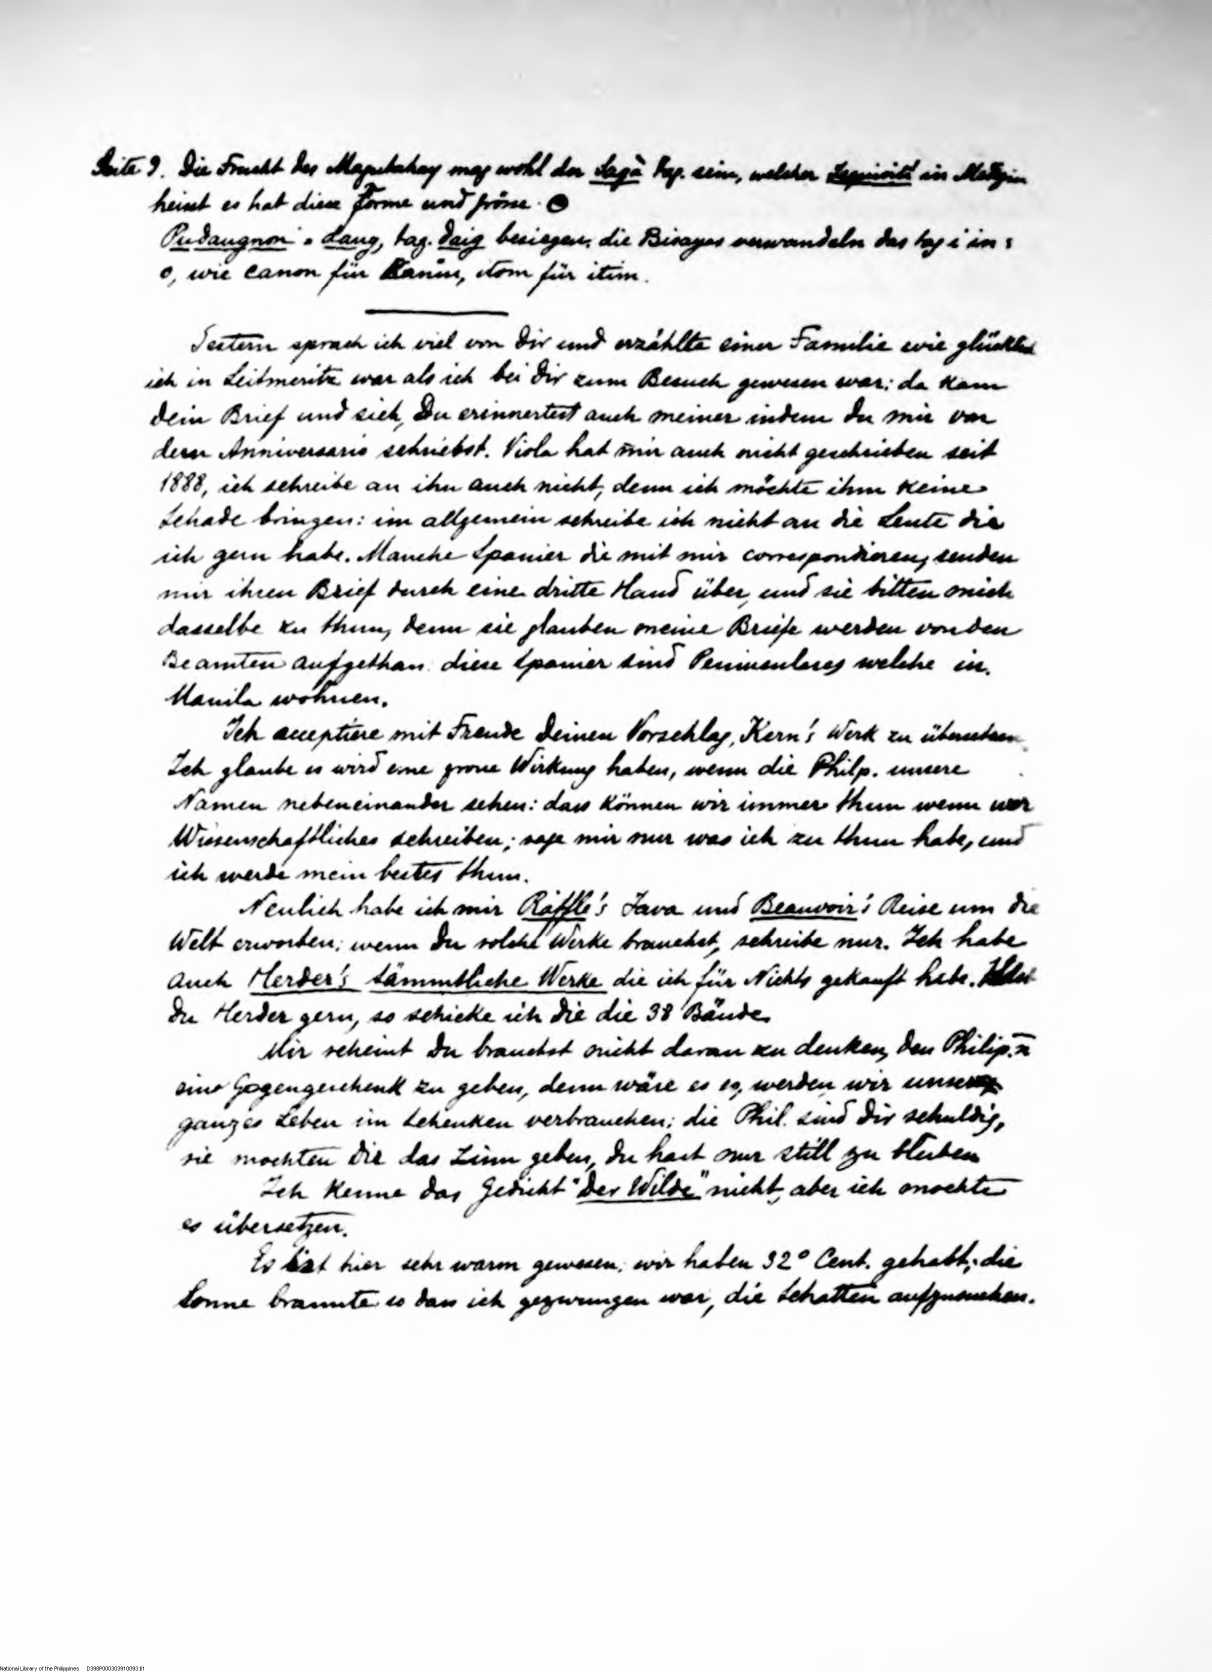 Seite 9. Die Frucht des Magutahay mag wohl der Sagà tag. sein, welcher Jequirité in Medizin
heisst es hat diese Forme und grösse.
Pudaugnon = daug, tag. daig besiegen; die Bisayos verwandeln das tag i in
o, wie canon für Kanin, itom für itim.
Gestern sprach ich viel von Dir und erzählte einer Familie wie glücklich
ich in Leitmeritz war als ich bei Dir zum Besuch gewesen war: da kam
dein Brief und sieh, Du erinnertest auch meiner indem du mir von
dem Anniversario schriebst. Viola hat mir auch nicht geschrieben seit
1888, ich schreibe an ihn auch nicht, denn ich möchte ihm keine
Schade bringen: im allgemein schreibe ich nicht an die Leute die
ich gern habe. Manche Spanier die mit mir correspondieren, senden
mir ihren Brief durch eine dritte Hand über, und sie bitten mich
dasselbe zu thun, denn sie glauben meine Briefe werden von den
Beamten aufgethan. diese Spanier sind Peninsulares welche in
Manila wohnen.
Ich acceptiere mit Freude Deinen Vorschlag, Kern's Werk zu übersetzen
Ich glaube es wird eine grosse Wirkung haben, wenn die Philp. unsere
Namen nebeneinander sehen: dass können wir immer thun wenn wir
Wissenschaftliches schreiben; sage mir nur was ich zu thun habe, und
ich werde mein bestes thun.
Neulich habe ich mir Raffle's Java und Beauvoir's Reise um die
Welt erworben; wenn Du solche Werke brauchst, schreibe nur. Ich habe
auch Herder's Sämmtliche Werke die ich für Nichts gekauft habe. Hast
du Herder gern, so schicke ich Die die 38 Bände.
Mir scheint Du brauchst nicht daran zu denken, den Philip.n
eine Gegengeschenk zu geben, denn wäre es es, werden wir unser
ganzes Leben im Schenken verbrauchen: die Phil. sind Dir schuldig,
sie mochten Die das Zinn geben, du hast nur still zu bleiben
Ich kenne das Gedicht "Der Wilde" nicht, aber ich mochte
es übersetzen.
Es ist hier sehr warm gewesen; wir haben 32° Cent. gehabt; die
Sonne brannte so dass ich gezwungen war, die Schatten aufzusuchen.
National Library of the Philippines